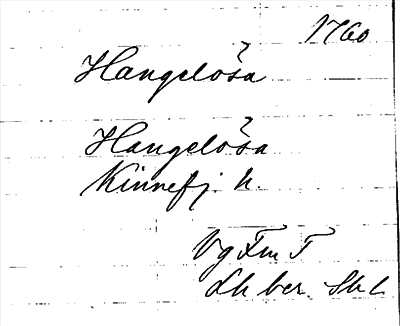 1760
Hangelösa
Hangelösa
Kinnefj. h.
Vg Fm T
Lh ber. Sk L